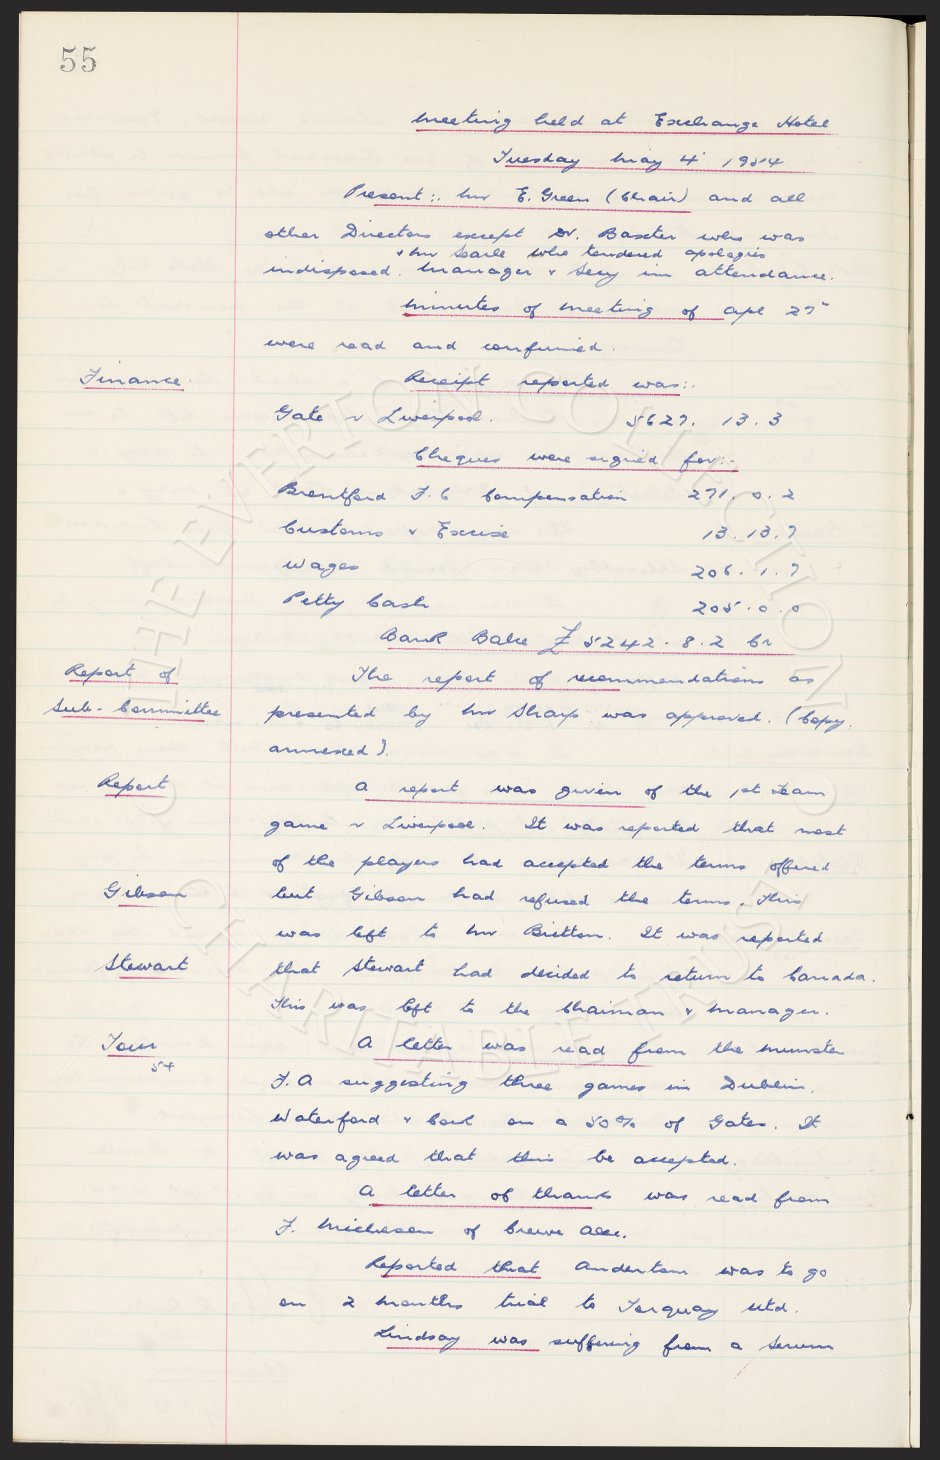 55
Meeting held at Exchange Hotel
Tuesday May 4 1954
Present:. Mr E. Green (Chair) and all
other Directors except Dr. Baxter who was
& Mr Searle who tendered apologies
indisposed. Manager & Secy in attendance.
Minutes of meeting of Apl 27
were read and confirmed.
Finance. Receipt reported was:.
Gate v Liverpool. 5627. 13. 3
Cheques were signed for:-
Brentford F.C Compensation 271. 0. 2
Customs & Excise 13. 13. 7
Wages 206. 1. 7
Petty Cash 205. 0. 0
Bank Balce £ 5242. 8. 2 Cr
Report of The report of recommendations as
Sub-Committee presented by Mr Sharp was approved. (Copy.
annexed).
Report A report was given of the 1st team
game v Liverpool. It was reported that most
of the players had accepted the terms offered
Gibson but Gibson had refused the terms. This
was left to Mr Britton. It was reported
Stewart that Stewart had decided to return to Canada.
This was left to the Chairman & Manager.
Tour A letter was read from the Munster
54
F.A suggesting three games in Dublin,
Waterford & Cork on a 50% of Gates. It
was agreed that this be accepted.
A letter of thanks was read from
J. of Crewe Alex.
Reported that Anderton was to go
on 2 months trial to Torquay Utd.
Lindsay was suffering from a serum
THE EVERTON COLLECTION
CHARITABLE TRUST